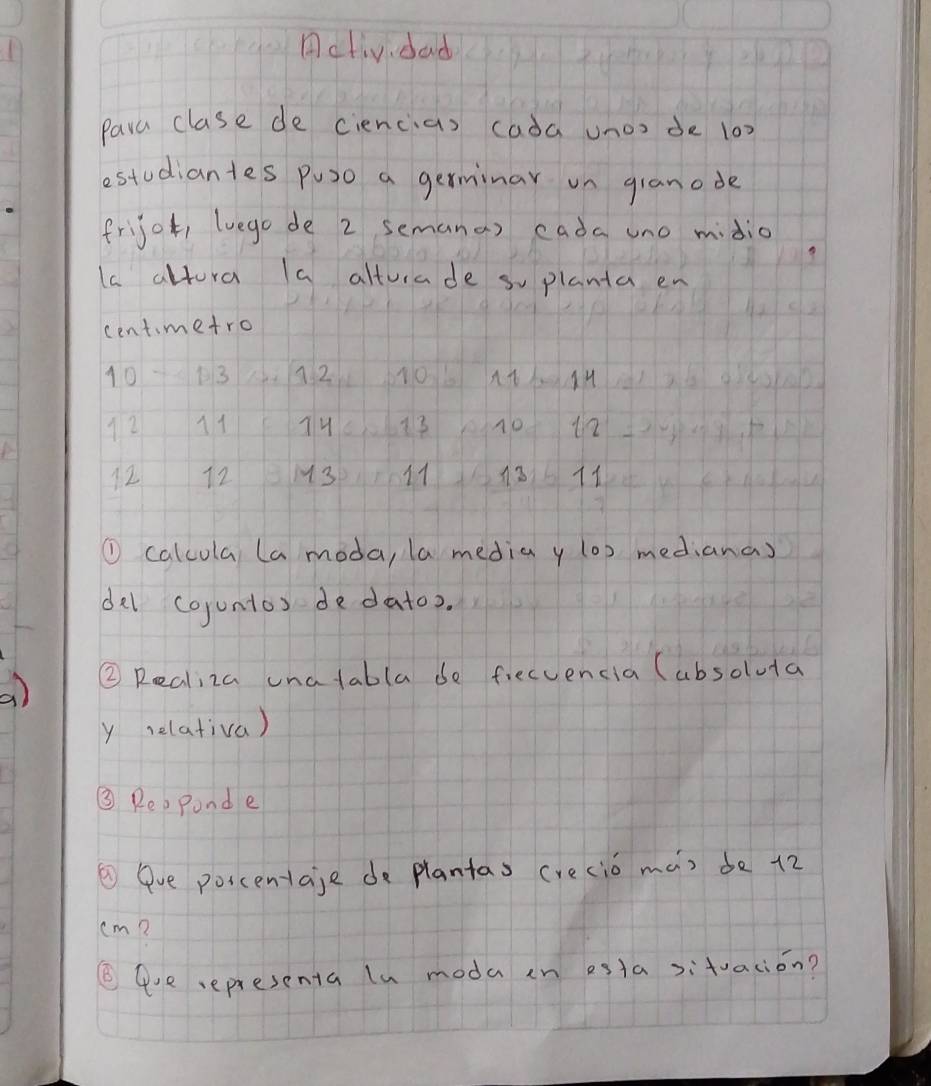 Actividad
Para clase de ciencias cada unos de los
estudiantes puso a germinar un grano de
frijol, luego de 2 semanas cada uno midio
la altura la altura de su planta en
centimetro
10 13 12 10 11 14
12 11 14 13 10 12
12 12 13 11 13 11
① calcula la moda, la media y los medianas
del cojuntos de datos.
② Realiza una tabla de frecuencia (absoluta
y relativa)
③ Responde
Ⓐ Que porcentaje de plantas creció más de 12
cm?
Ⓑ Que representa la moda en esta situación?
a)